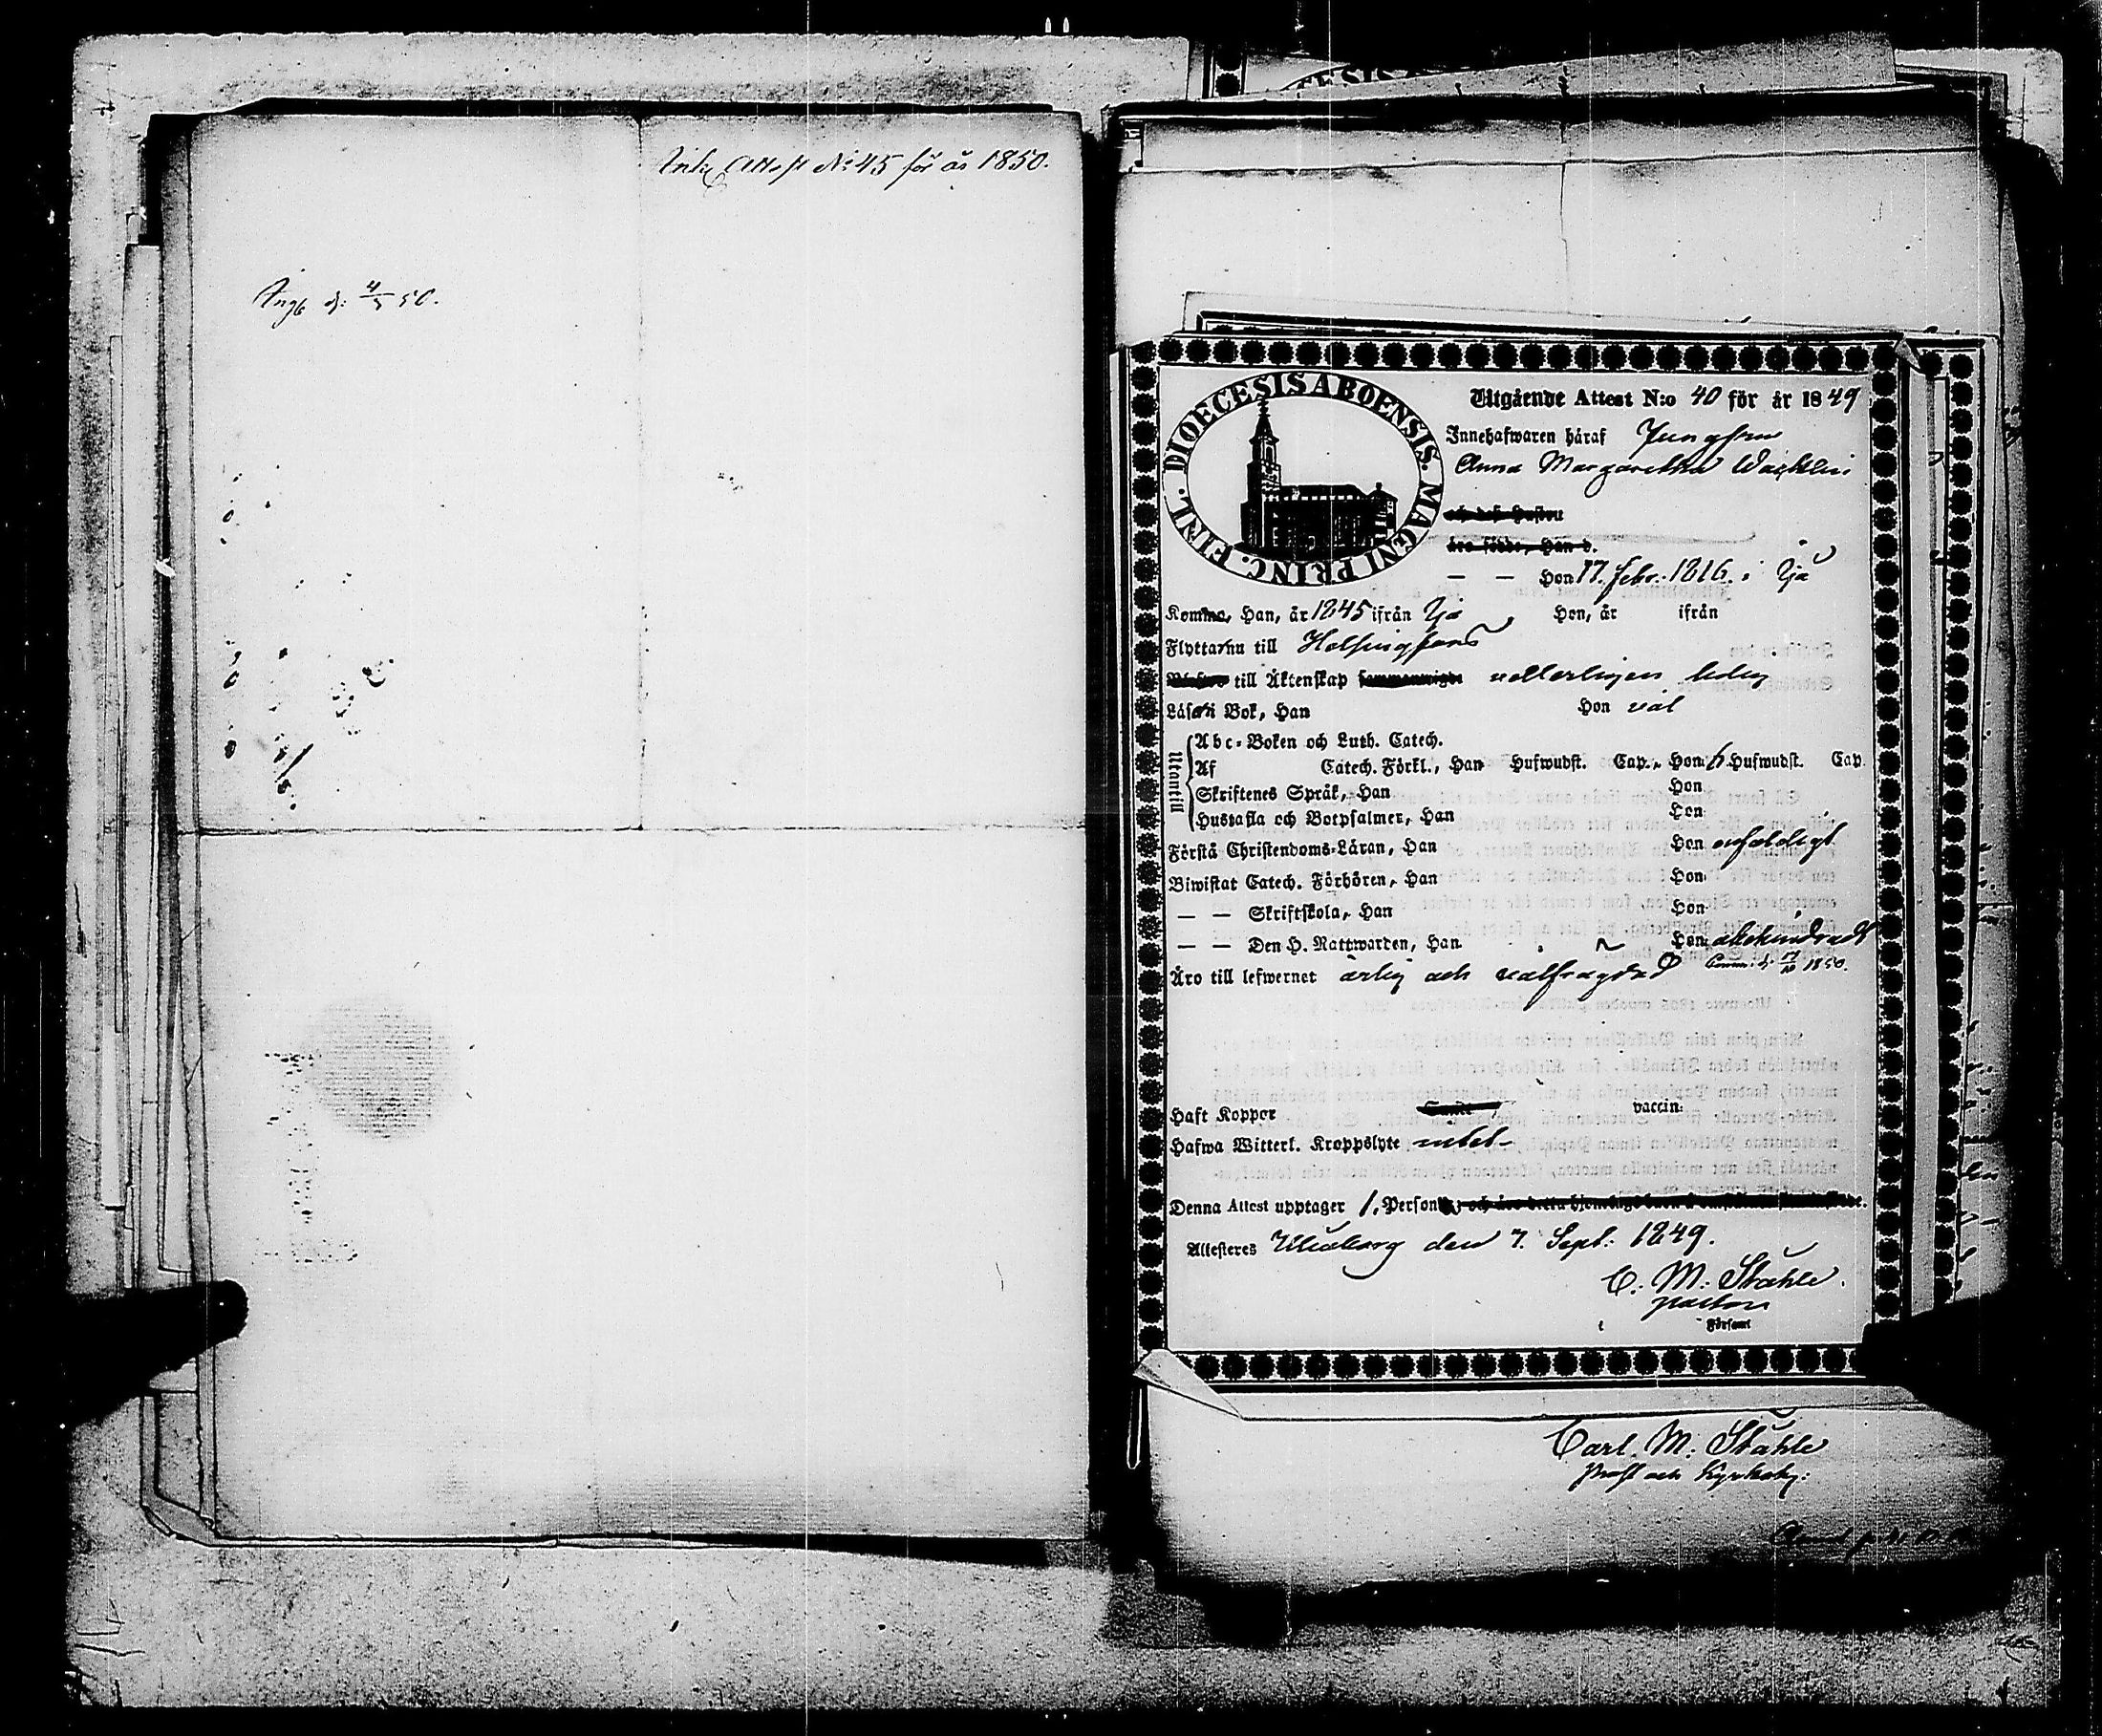 Ink. Attest No: 45 för år 1850.
Ingb. d: 4/5 50.
DIOECESIS ABOENSIS. MAGNI PRINC. FINL.
Utgående Attest N:o 40 för år 1849
Innehafwaren häraf Jungfru
Anna Margaretha Wacklin
och deß Hustru
äro födde, Han d.
— — Hon 17. febr: 1816. i Ijo
Komne, Han, år 1845 ifrån Ijo Hon, år ifrån
Flyttar nu till Helsingfors
till Äktenskap sammanwigde veterligen ledig
Läser i Bok, Han Hon väl
Utantill
Abc-Boken och Luth. Catech.
Af Catech. Förkl., Han Hufwudst. Cap., Hon 6 Hufwudst. Cap.
Skriftenes Språk, Han Hon
Hustafla och Botpsalmer, Han Hon
Förstå Christendoms-Läran, Han Hon enfaldigt
Biwistat Catech. Förhören, Han Hon
— — Skriftskola, Han Hon
— — Den H. Nattwarden, Han Hon obehindradt
Comm: d. 17/10 1850.
Äro till lefwernet ärlig och välfrägdad
Haft Koppor vaccin:
Hafwa Witterl. Kroppslyte intet
Denna Attest upptager 1. Person
Attesteres Uleåborg den 7. Sept: 1849.
C. M: Ståhle.
pastor
i Församl
Carl. M: Ståhle
Prost och Kyrkoh: